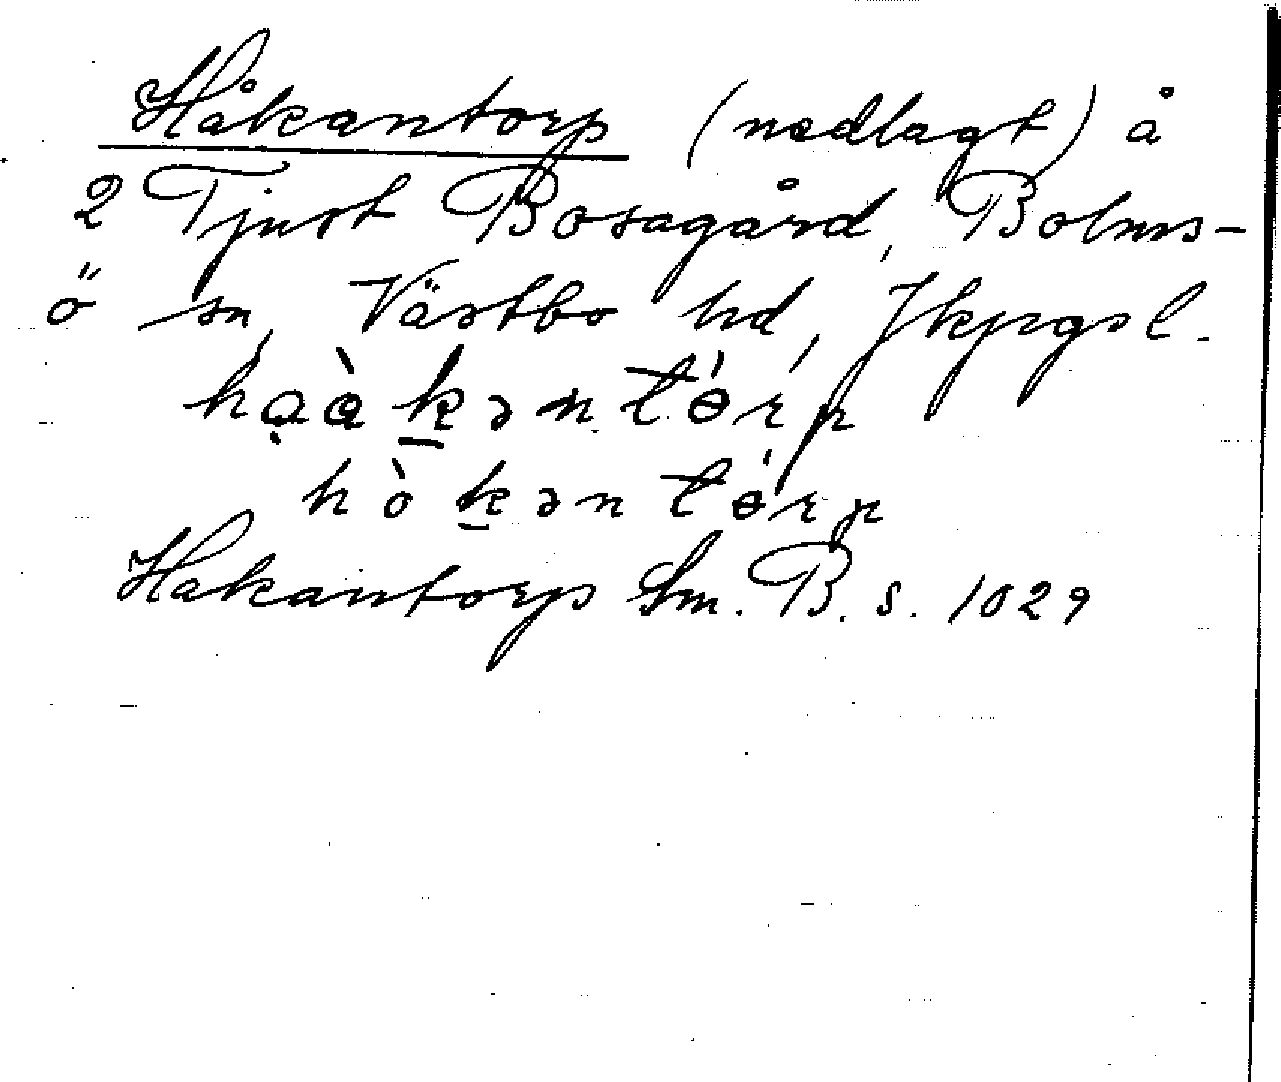 Håkantorp (nedlagt) å
2 Tjust Bosagård, Bolms-
ö sn, Västbo hd, Jkpgs l.
hạàkəntɵ́rp
hòkəntɵ́rp
Hakantorp Sm. B. s. 1029